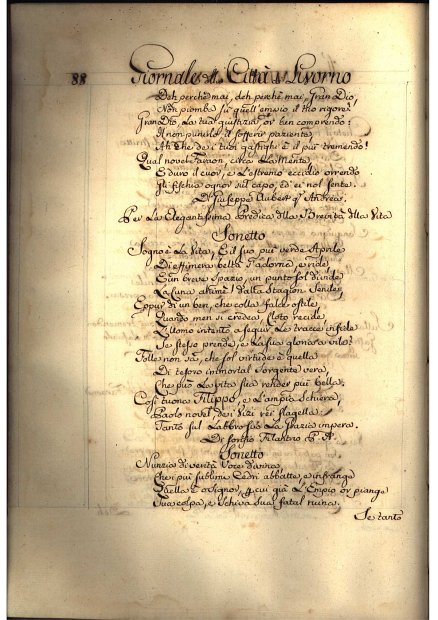 88 Giornale della Città di Livorno
Deh perchè mai, deh perchè mai, Gran Dio,
Non piomba su quell'empio il tuo rigore?
Gran Dio, La tua giustizia or ben comprendo:
Il non punirlo, il sofferir paziente,
Ah che de i tuoi gastighi è il più tremendo!
Qual novel Faraon, circa La Mente
E duro il cuor, e L'estremo eccidio orrendo
Gli fischia ognor sul capo, ed ei nol sente.
Di Giuseppe Aubert q. Andrea.
Per La Elegantissima Predica della Brevità della Vita
Sonetto
Sogno è La Vita, E il suo più verde Aprile
Di effimera beltà s'adorna, e ride
E un breve Spazio, un punto sol divide
La Cuna ahimè! dalla Stagion Senile,
Eppur di un ben, che colla falce ostile
Quando men si credea, Cloto recide,
L'Uomo intento a seguir Le tracce infide
Se stesso prende, e La sua gloria a vile?
Folle non sà, che sol virtude è quella
Di tesoro immortal Sorgente vera,
Che può La vita sua render più bella;
Così tuona Filippo, e L'ampia Schiera,
Paolo novel, de i Vizi rei flagella
Tanto sul Labbro suo La Grazia impera.
Di P. A.
Sonetto
Nunzio di verità Voce divina
Che i più sublimi Cedri abbatte, e infrange
Quella è o Signor, per cui già L'Empio or piange
Sua colpa, e Schiva Sua fatal ruina.
Se tanto